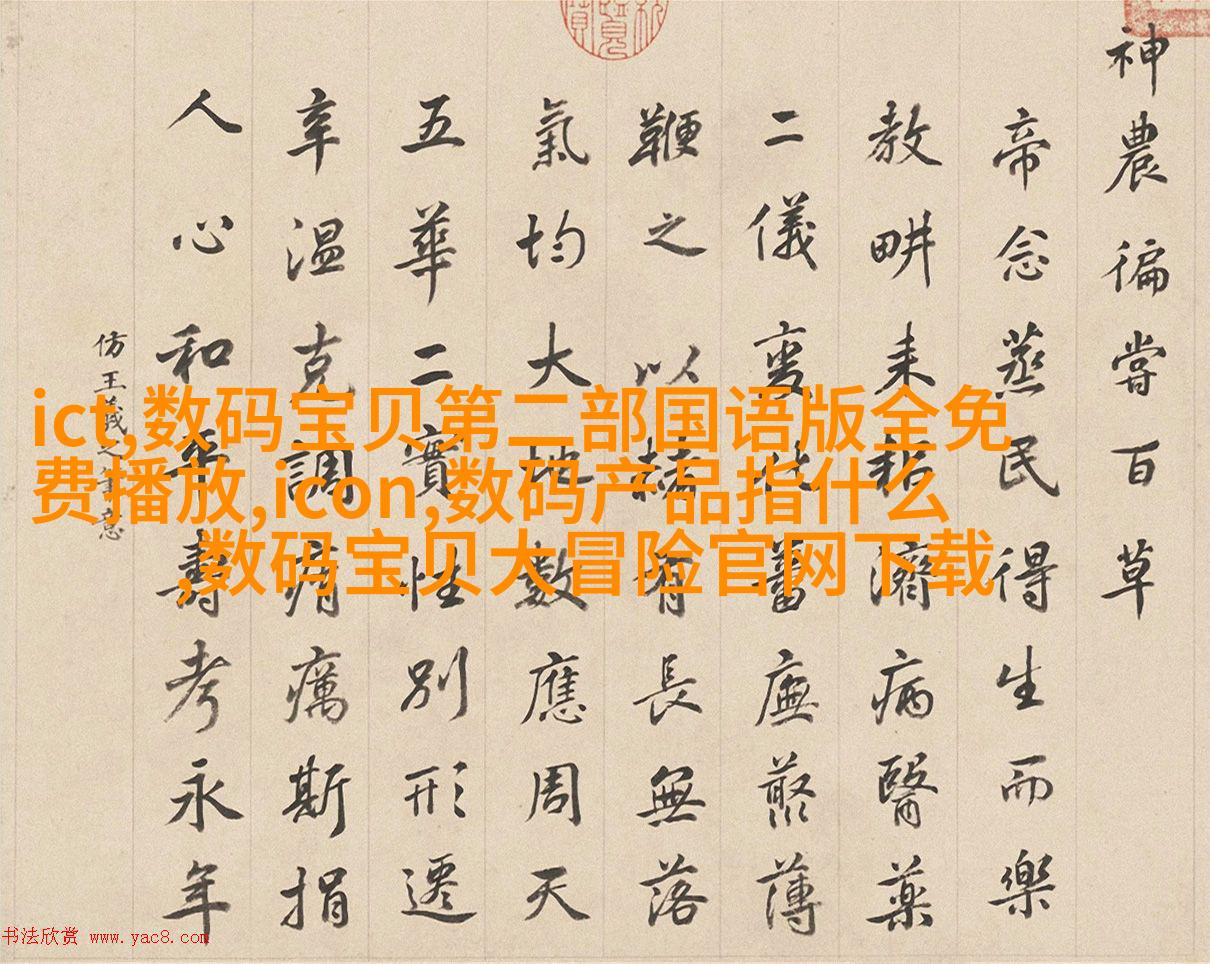 神農徧嘗百草
帝念蒸民得生而樂
教畊耒耜濟病醫藥
二儀變化蕃廡藂薄
鞭之以赭有長無落
氣均大地數應周天
五華二實性別形遷
辛溫克調癘斯捐
人心和平壽考永年
仿王羲之筆意
ict,数码宝贝第二部国语版全免
费播放,icon,数码产品指什么
,数码宝贝大冒险官网下载
书法欣赏 www.yac8.com